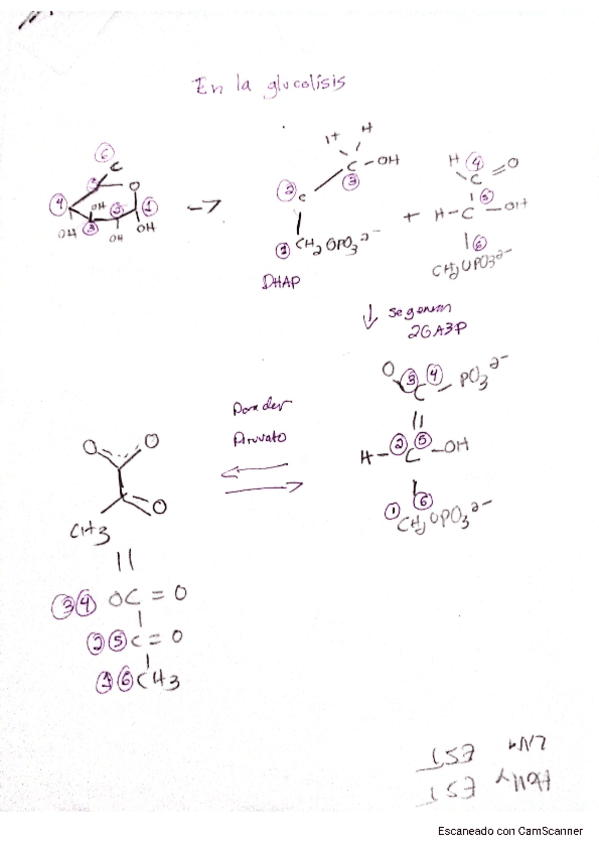 En la glucolisis
6
C
5
O
4
OH
3
2
1
OH
OH
OH
→
H
H
C-OH
3
2
C
1
CH2OPO3 2-
DHAP
+
H
4
C
O
H-C
5
-OH
6
CH2OPO3 2-
↓ se generan
2GA3P
O
3
4
C
PO3 2-
H-
2
C
5
-OH
1
6
CH2OPO3 2-
Piruvato
O
O
O
CH3
3 4 OC = O
2 5 C = O
1 6 CH3
Escaneado con CamScanner